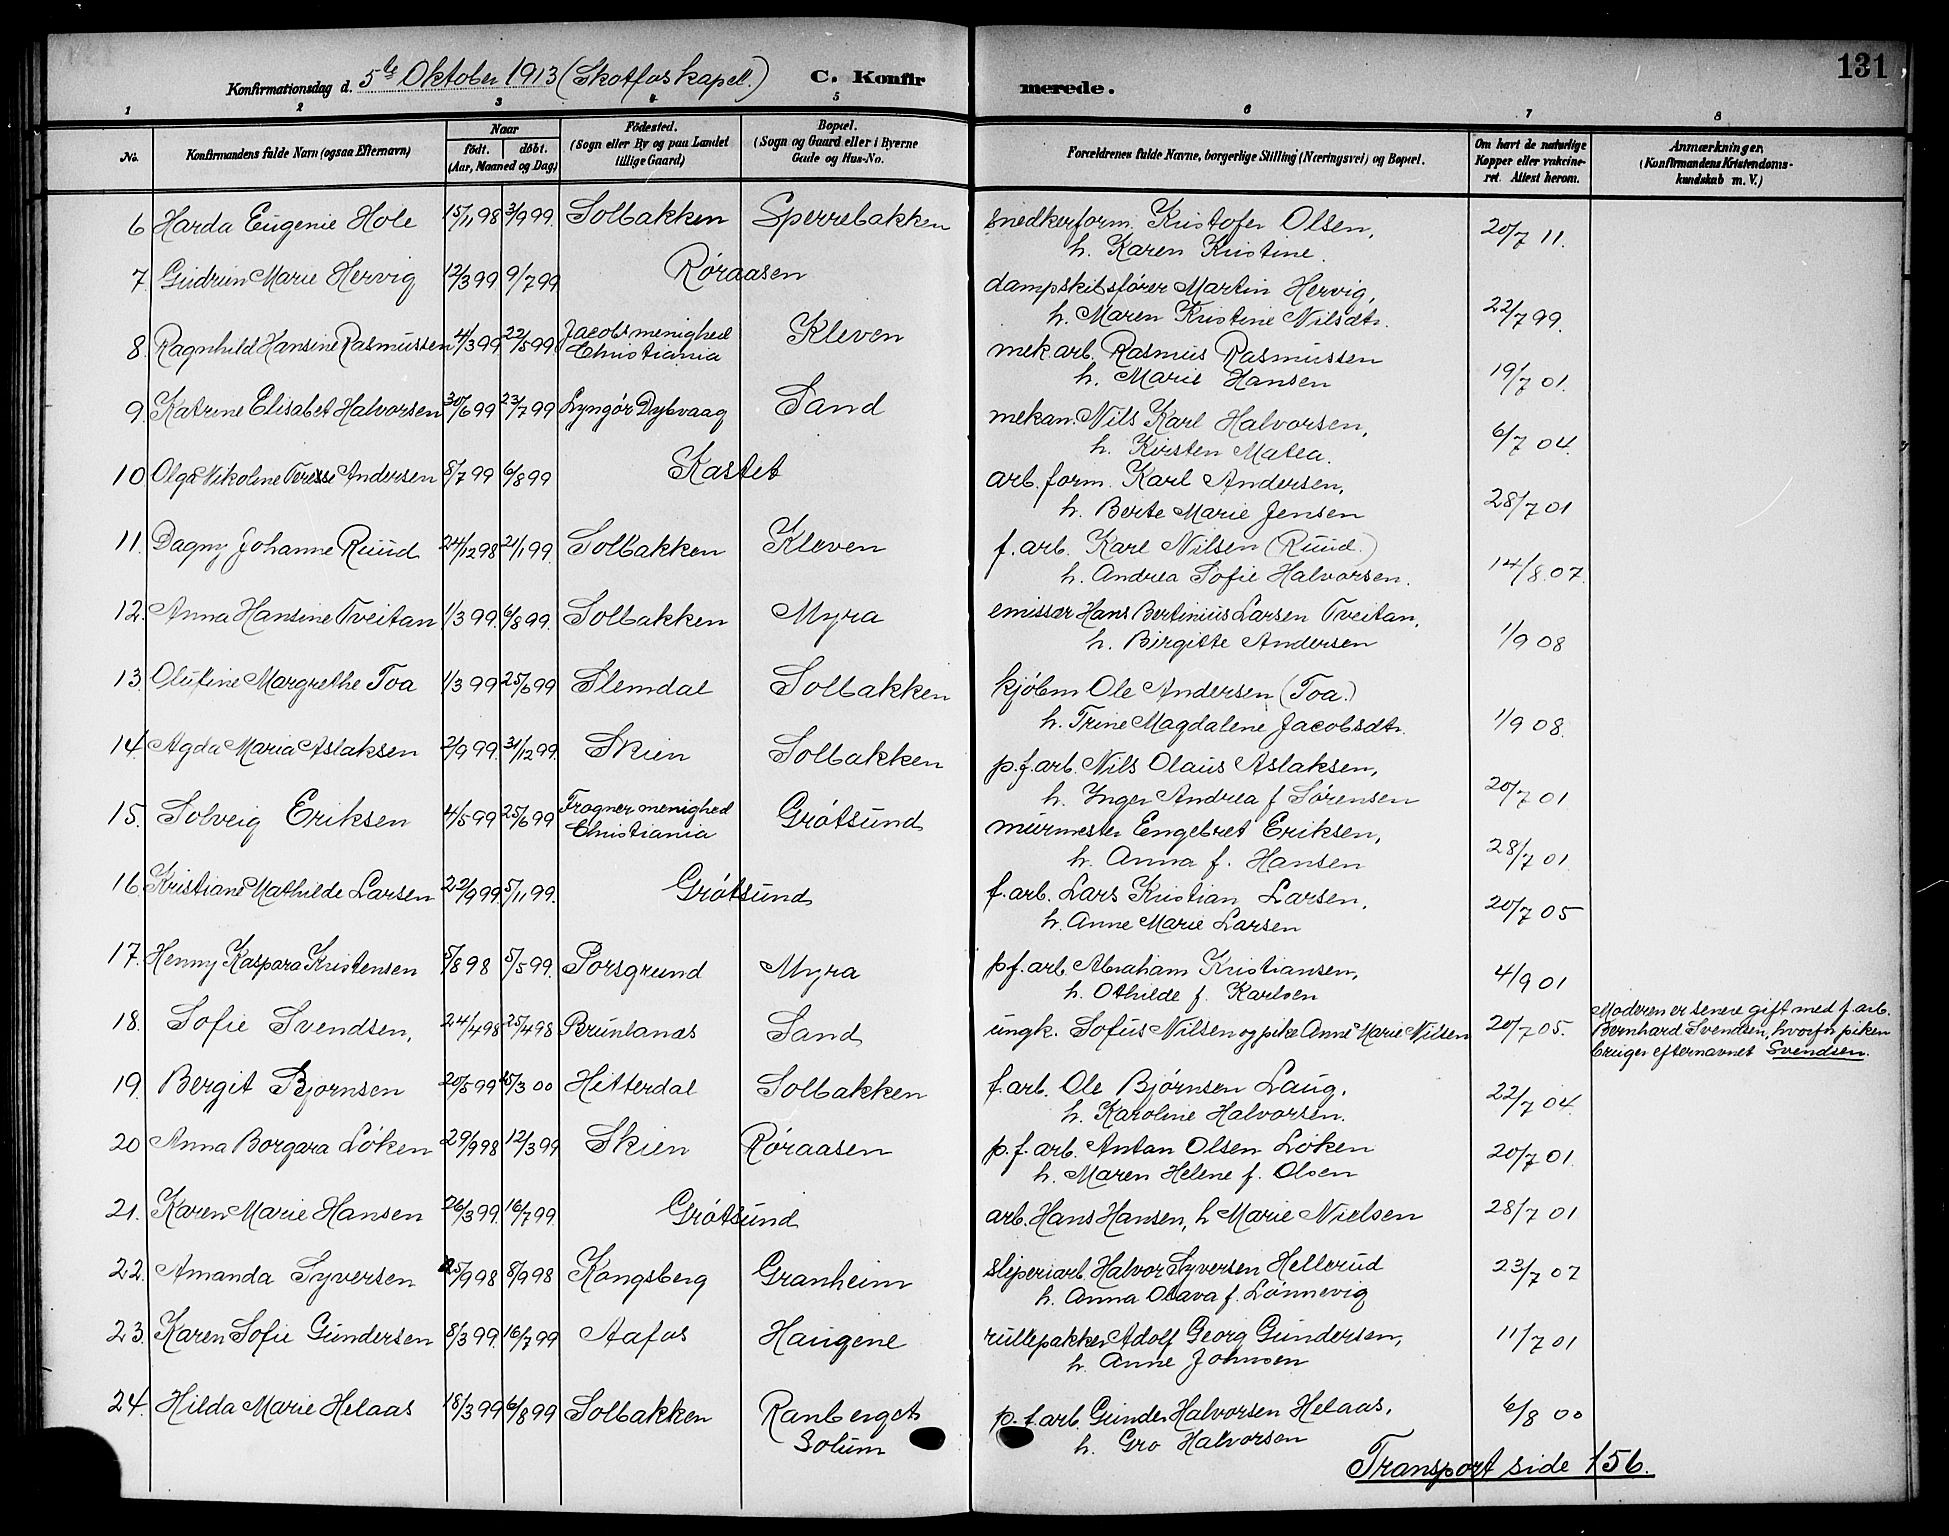 131
Konfirmationsdag d. 5te Oktober 1913 (Skotfos kapel.) C. Konfirmerede.
1 2 3 4 5 6 7 8
No. Konfirmandens fulde Navn (ogsaa Efternavn) Naar født. døbt. (Aar, Maaned og Dag) Fødested. (Sogn eller By og paa Landet tillige Gaard) Bopæl. (Sogn og Gaard eller i Byerne Gade og Hus-No. Forældrenes fulde Navne, borgerlige Stilling (Næringsvei) og Bopæl. Om havt de naturlige Kopper eller vakcineret. Attest herom. Anmærkninger. (Konfirmandens Kristendomskundskab m. V.)
6 Harda Eugenie Hole 15/11 98 3/9 99. Solbakken Sperrebakken snedkerform. Kristofer Olsen, 20/7 11.
h. Karen Kristine.
7. Gudrun Marie Hervig 12/3 99 9/7 99 Røraasen dampskibsfører Martin Hervig, 22/7 99.
h. Maren Kristine Nilsdtr.
8. Ragnhild Hansine Rasmussen 4/3 99 22/5 99 Jacobs menighed Christiania Kleven mek arb. Rasmus Rasmussen 19/7 01.
h. Marie Hansen
9. Katrine Elisabet Halvorsen 30/6 99 23/7 99 Lyngør Dybvaag Sand mekan. Nils Karl Halvorsen, 6/7 04.
h. Kirsten Matea.
10 Olga Nikoline Terese Andersen 8/7 99 6/8 99 Kastet arb. form. Karl Andersen, 28/7 01
h. Berte Marie Jensen
11. Dagny Johanne Ruud 24/12 98 21/1 99. Solbakken Kleven f. arb. Karl Nilsen (Ruud.) 14/8 07.
h. Andrea Sofie Halvorsen.
12. Anna Hansine Tveitan 1/3 99. 6/8 99. Solbakken Myra emissær Hans Bertinius Larsen Tveitan, 1/9 08
h. Birgitte Andersen
13. Olufine Margrethe Toa 1/3 99 25/6 99 Slemdal Solbakken kjøbm Ole Andersen (Toa.) 1/9 08.
h. Trine Magdalene Jacobsdtr.
14. Agda Maria Aslaksen 2/9 99. 31/12 99. Skien Solbakken p.f. arb. Nils Olaus Aslaksen, 20/7 01
h. Inger Andrea f Sørensen
15. Solveig Eriksen 4/5 99 25/6 99 Frogner menighed Christiania Grøtsund murmester Engebret Eriksen, 28/7 01
h. Anna f. Hansen
16. Kristiane Mathilde Larsen 22/9 99. 5/11 99. Grøtsund f. arb. Lars Kristian Larsen, 20/7 05
h. Anne Marie Larsen
17. Henny Kaspara Kristensen 5/8 98 5/5 99. Porsgrund Myra p f. arb. Abraham Kristiansen, 4/9 01
h. Othilde f. Karlsen
18. Sofie Svendsen, 24/4 98 25/4 98 Brunlanæs Sand ungk. Sofus Nilsen og pike Anne Marie Nilsen 20/7 05. Moderen er senere gift med f. arb. Bernhard Svendsen, hvorfor piken bruger efternavnet Svendsen.
19. Bergit Bjørnsen 20/5 99 15/3 00 Hitterdal Solbakken f. arb. Ole Bjørnsen Laug, 22/7 04.
h. Karoline Halvorsen.
20 Anna Borgara Løken 29/9 98 12/3 99 Skien Røraasen p. f. arb. Anton Olsen Løken 20/7 01.
h. Maren Helene f. Olsen
21. Karen Marie Hansen 26/3 99. 16/7 99. Grøtsund arb. Hans Hansen, h Marie Nielsen 28/7 01
22. Amanda Syversen 25/9 98 8/9 98 Kongsberg Granheim sliperiarb. Halvor Syversen Hellerud 23/7 07
h. Anna Olava f. Lønnevig
23. Karen Sofie Gundersen 8/3 99. 16/7 99 Aafos Haugene rullepakker Adolf Georg Gundersen, 11/7 01
h. Anne Johnsen
24. Hilda Marie Helaas 18/3 99 6/8 99 Solbakken Ranberget Solum p. f. arb. Gunder Halvorsen Helaas, 6/8 00
h. Gro Halvorsen
Transport side 156.